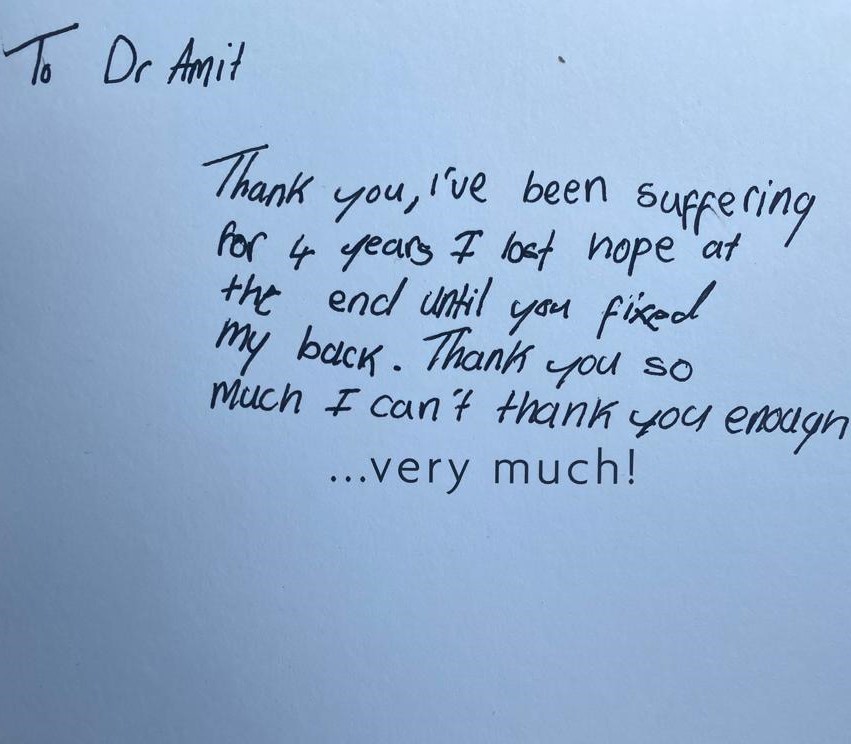 To Dr Amit
Thank you, I've been suffering
for 4 years I lost hope at
the end until you fixed
my back. Thank you so
much I can't thank you enough
...very much!